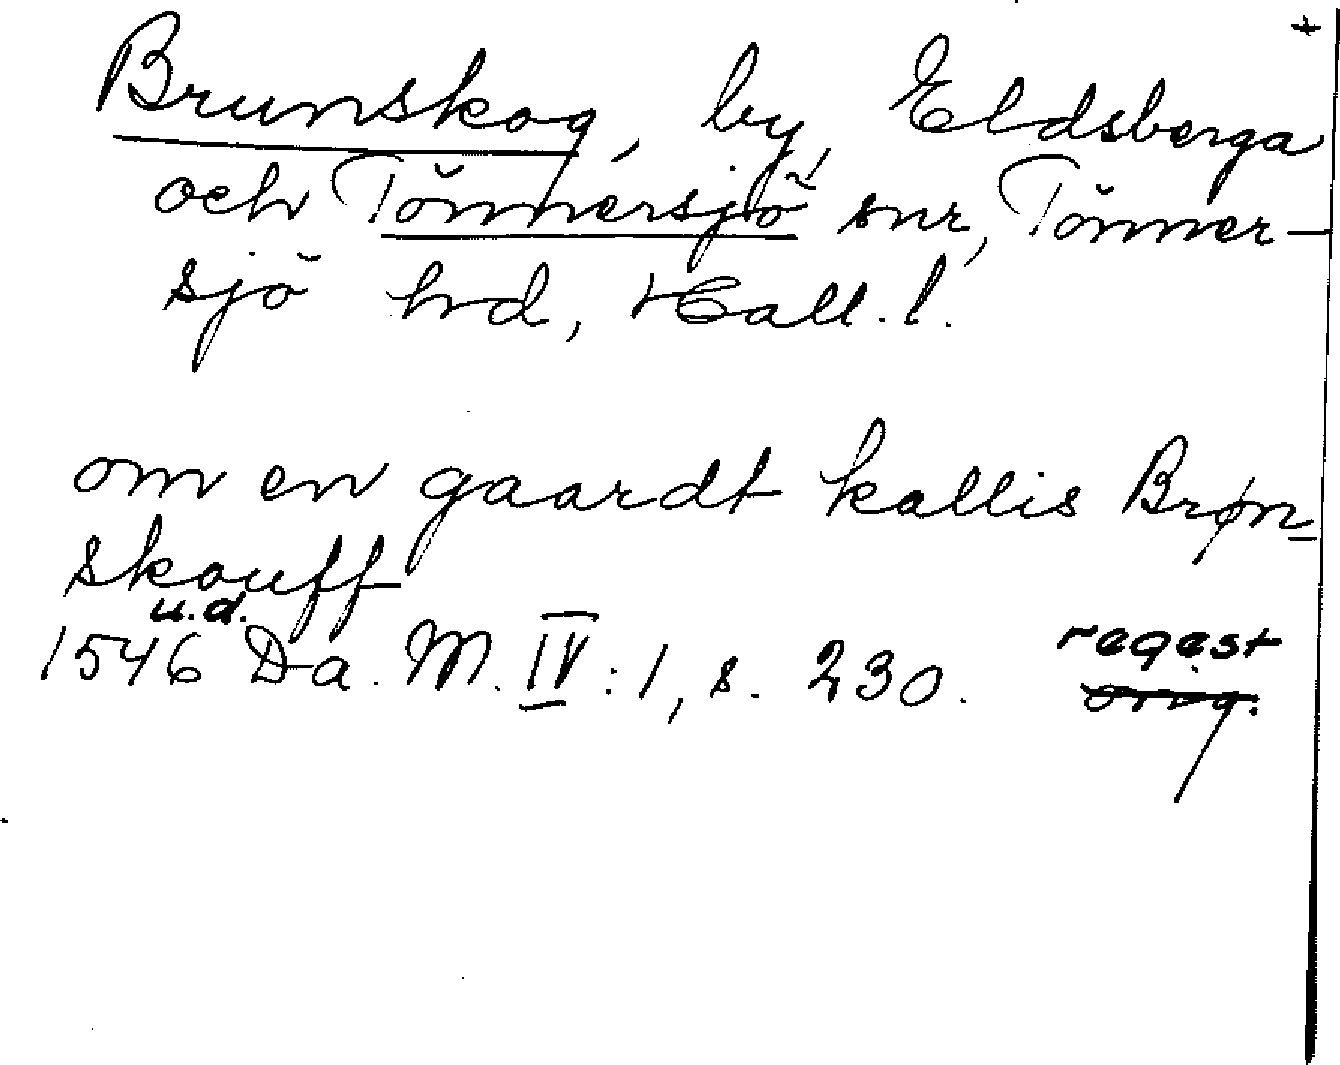 +
Brunskog, by, Eldsberga
och Tönnersjö snr, Tönner-
sjö hd, Hall. l.
om en gaardt kallis Brøn-
skouff
u.d.
1546 Da. M. IV:1, s. 230. regest
orig.